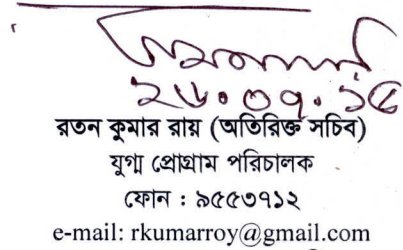 ২৮.০৭.১৫
রতন কুমার রায় (অতিরিক্ত সচিব)
যুগ্ম প্রোগ্রাম পরিচালক
ফোন : ৯৫৫৩৭১২
e-mail: rkumarroy@gmail.com